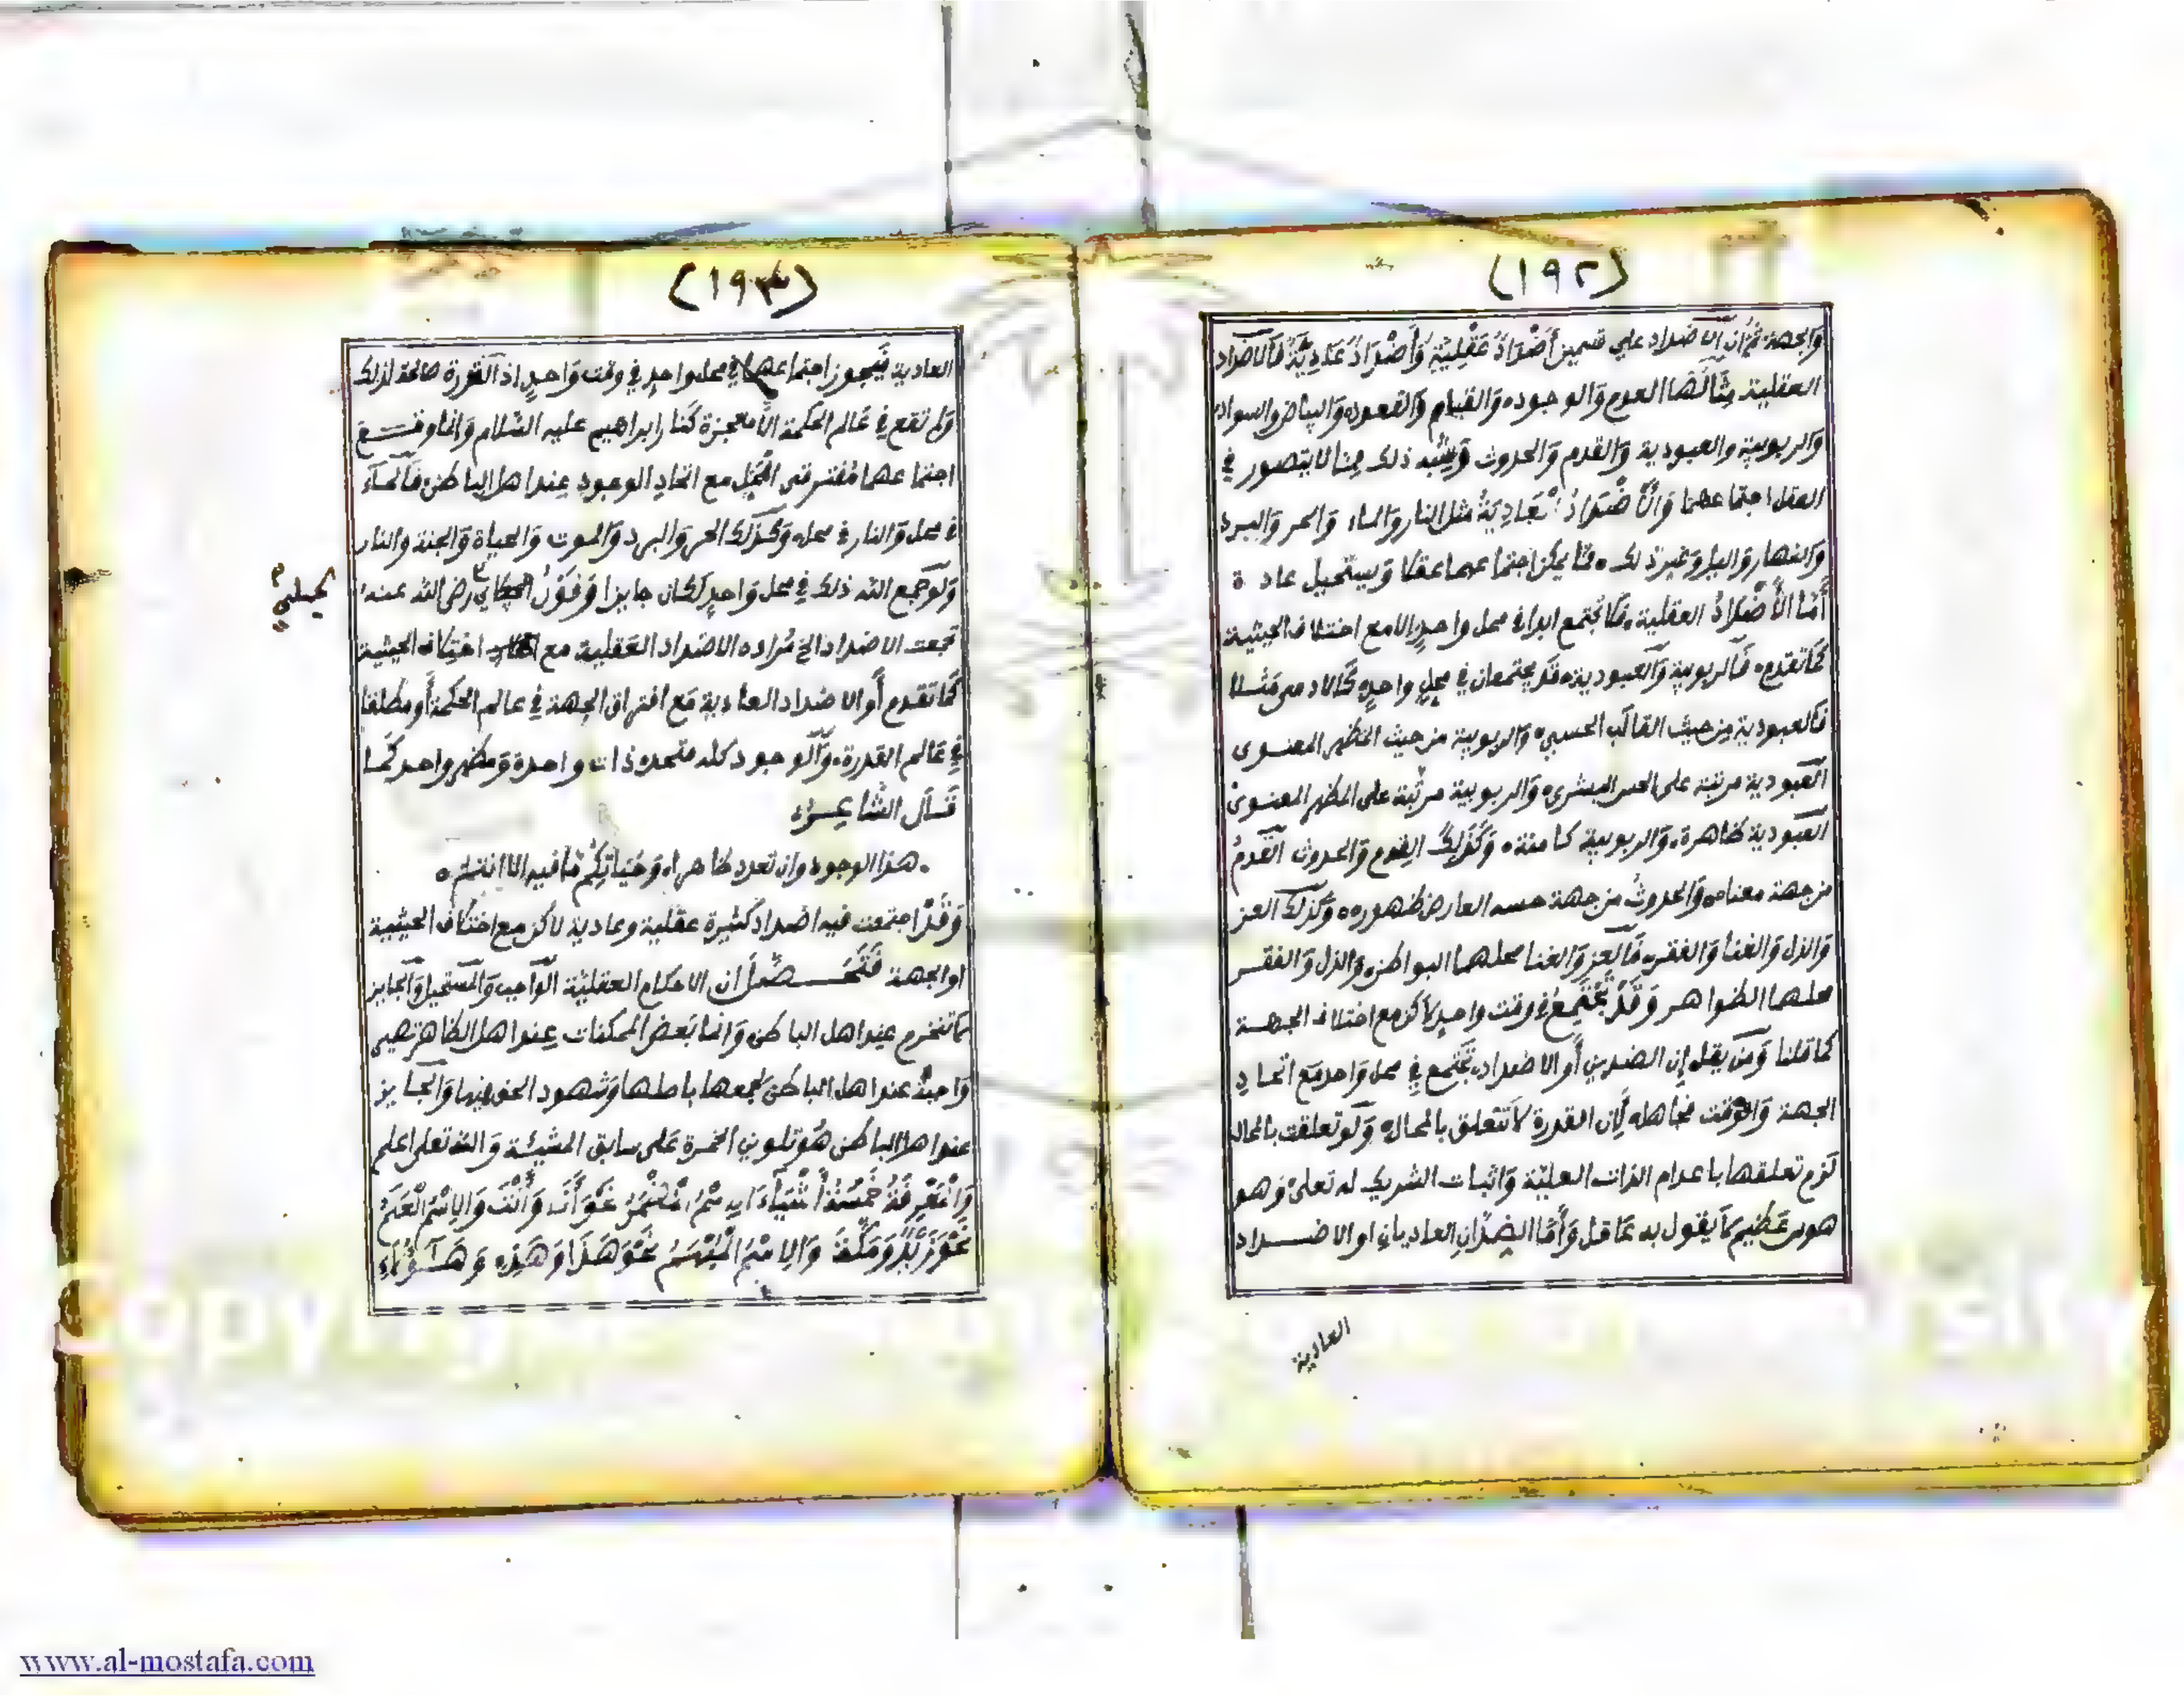 (١٩٢)
والجهة ثم ان الاضداد علي قسمين أضداد عقلية وأضداد عادية فالاضداد
العقلية مثالها العدم والوجود والقيام والقعود والبياض والسواد
والربوبية والعبودية والقدم والحدوث وشبه ذلك مما لا يتصور في
العقل اجتماعهما والأضداد العادية مثل النار والماء والحر والبرد
والنهار واليل وغير ذلك مما يمكن اجتماعهما عقلا ويستحيل عادة
أما الأضداد العقلية فلا تجتمع ابدا في محل واحد الا مع اختلاف الحيثية
كما تقدم فالربوبية والعبودية قد يجتمعان في محل واحد كالادمى مثلا
فالعبودية من حيث القالب الحسي والربوبية من حيث المظهر المعنوى
العبودية مرتبة على الحس البشري والربوبية مرتبة على المظهر المعنوى
العبودية ظاهرة والربوبية كامنة وكذلك القدم والحدوث القدم
من جهة معناه والحدوث من جهة حسه العارض ظهوره وكذلك العز
والذل والغنا والفقر فالعز والغنا محلهما البواطن والذل والفقر
محلهما الظواهر وقد تجتمع في وقت واحد لاكن مع اختلاف الجهة
كما قلنا ومن يقل إن الضدين أو الاضداد تجتمع في محل واحد مع اتحاد
الجهة والوقت فجاهل لأن القدرة لا تتعلق بالمحال ولو تعلقت بالمحال
لزم تعلقها باعدام الذات العلية واثبات الشريك له تعلى وهو
هوس عظيم لا يقول به عاقل وأما الضدان العاديان او الاضداد
العادية
(١٩٣)
العادية فيجوز اجتماعهما في محل واحد في وقت واحد اذ القدرة صالحة لذلك
ولم تقع في عالم الحكمة الا معجزة كنار ابراهيم عليه السلام وانما وقع
اجتماعهما مفترقى المحل مع اتحاد الوجود عند اهل الباطن فالماء
في محل والنار في محل وكذلك الحر والبرد والموت والحياة والجنة والنار
ولو جمع الله ذلك في محل واحد لكان جايزا وقول رضي الله عنه
تجمعت الاضداد الخ مراده الاضداد العقلية مع اختلاف الحيثية
كما تقدم أو الاضداد العادية مع افتراق الجهة في عالم الحكمة أو مطلقا
في عالم القدرة والوجود كله متحد ذات واحدة ومظهر واحد كما
قال الشاعر
هذا الوجود وان تعدد ظاهرا وحياتكم ما فيه الا انتم
وقد اجتمعت فيه اضداد كثيرة عقلية وعادية لاكن مع اختلاف الحيثية
او الجهة فتحصل أن الاحكام العقلية الواجب والمستحيل والجايز
لا تنخرم عند اهل الباطن وانما بعض الممكنات عند اهل الظاهر تصير
واجبة عند اهل الباطن لجمعها باصلها وشهود الحق فيها والجايز
عند اهل الباطن هو تلوين الخمرة على سابق المشيئة والله تعلى اعلم
والمعرفة خمسة أشياء الاسم المضمر نحو أنا وأنت والاسم العلم
نحو زيد ومكة والاسم المبهم نحو هذا وهذه وهؤلاء
www.al-mostafa.com